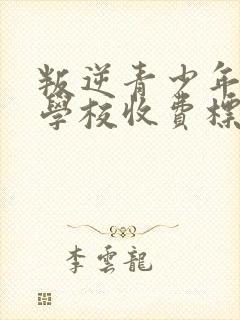 叛逆青少年
學校收費標
李雲龍